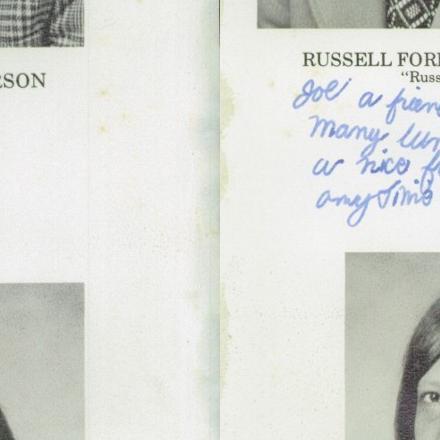 RSON
RUSSELL FOR
"Russ
Joe a frien
many lun
a nice f
anytime